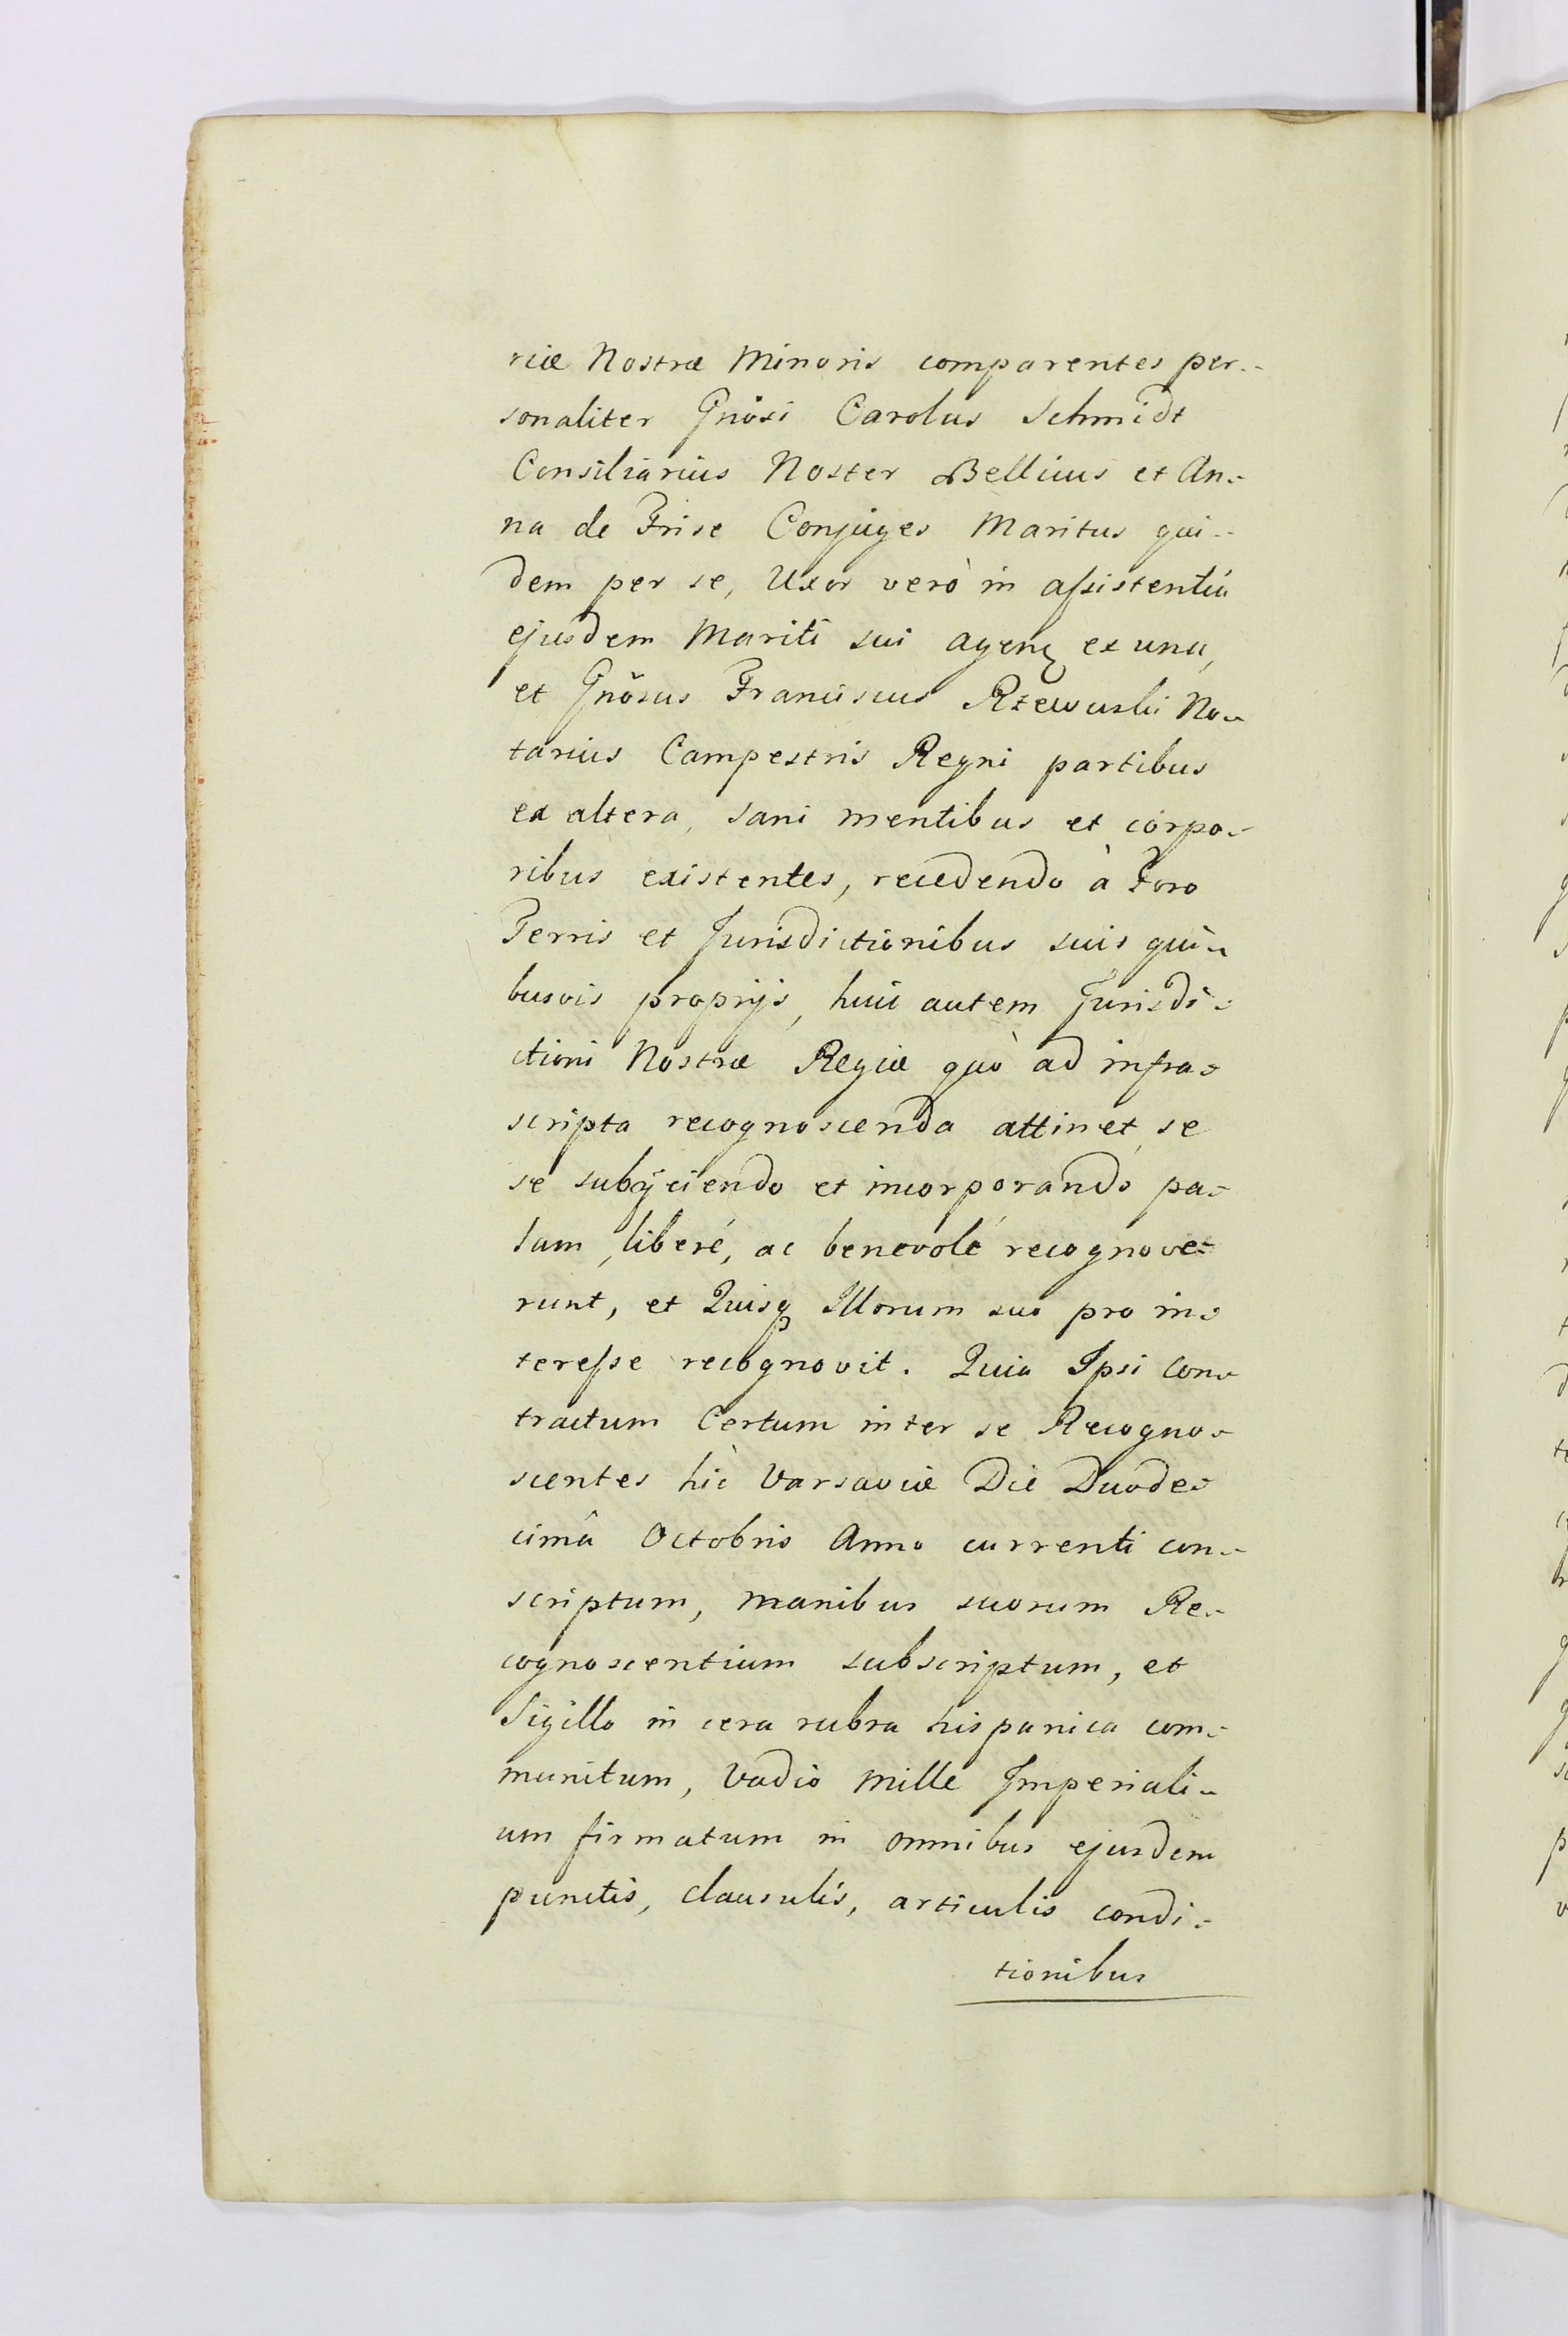 riæ Nostræ Minoris comparentes per-
sonaliter Gnõsi Carolus Schmidt
Consiliarius Noster Bellicus et An-
na de Frise Conjuges Maritus qui-
dem per se, Uxor verò in aſsistentiâ
ejusdem Mariti sui agenȩ ex una,
et Gnõsus Franciscus Rzewuski No-
tarius Campestris Regni partibus
ex altera, sani mentibus et corpo-
ribus existentes, recedendo à Foro
Terris et Jurisdictionibus suis qui-
busvis proprijs, huic autem Jurisdi-
ctioni Nostræ Regiæ quò ad infra-
scripta recognoscenda attinet, se
se subijciendo et incorporando pa-
lam, liberé, ac benevolé recognove-
runt, et Quisqȝ Illorum suo pro in-
tereſse recognovit. Quia Ipsi Con-
tractum Certum inter se Recogno-
scentes hìc Varsaviæ Die Duode-
cimâ Octobris Anno currenti con-
scriptum, manibus suorum Re-
cognoscentium subscriptum, et
Sigillo in cera rubra hispanica com-
munitum, Vadio Mille Imperiali-
um firmatum in omnibus ejusdem
punctis, clausulis, articulis condi-
tionibus